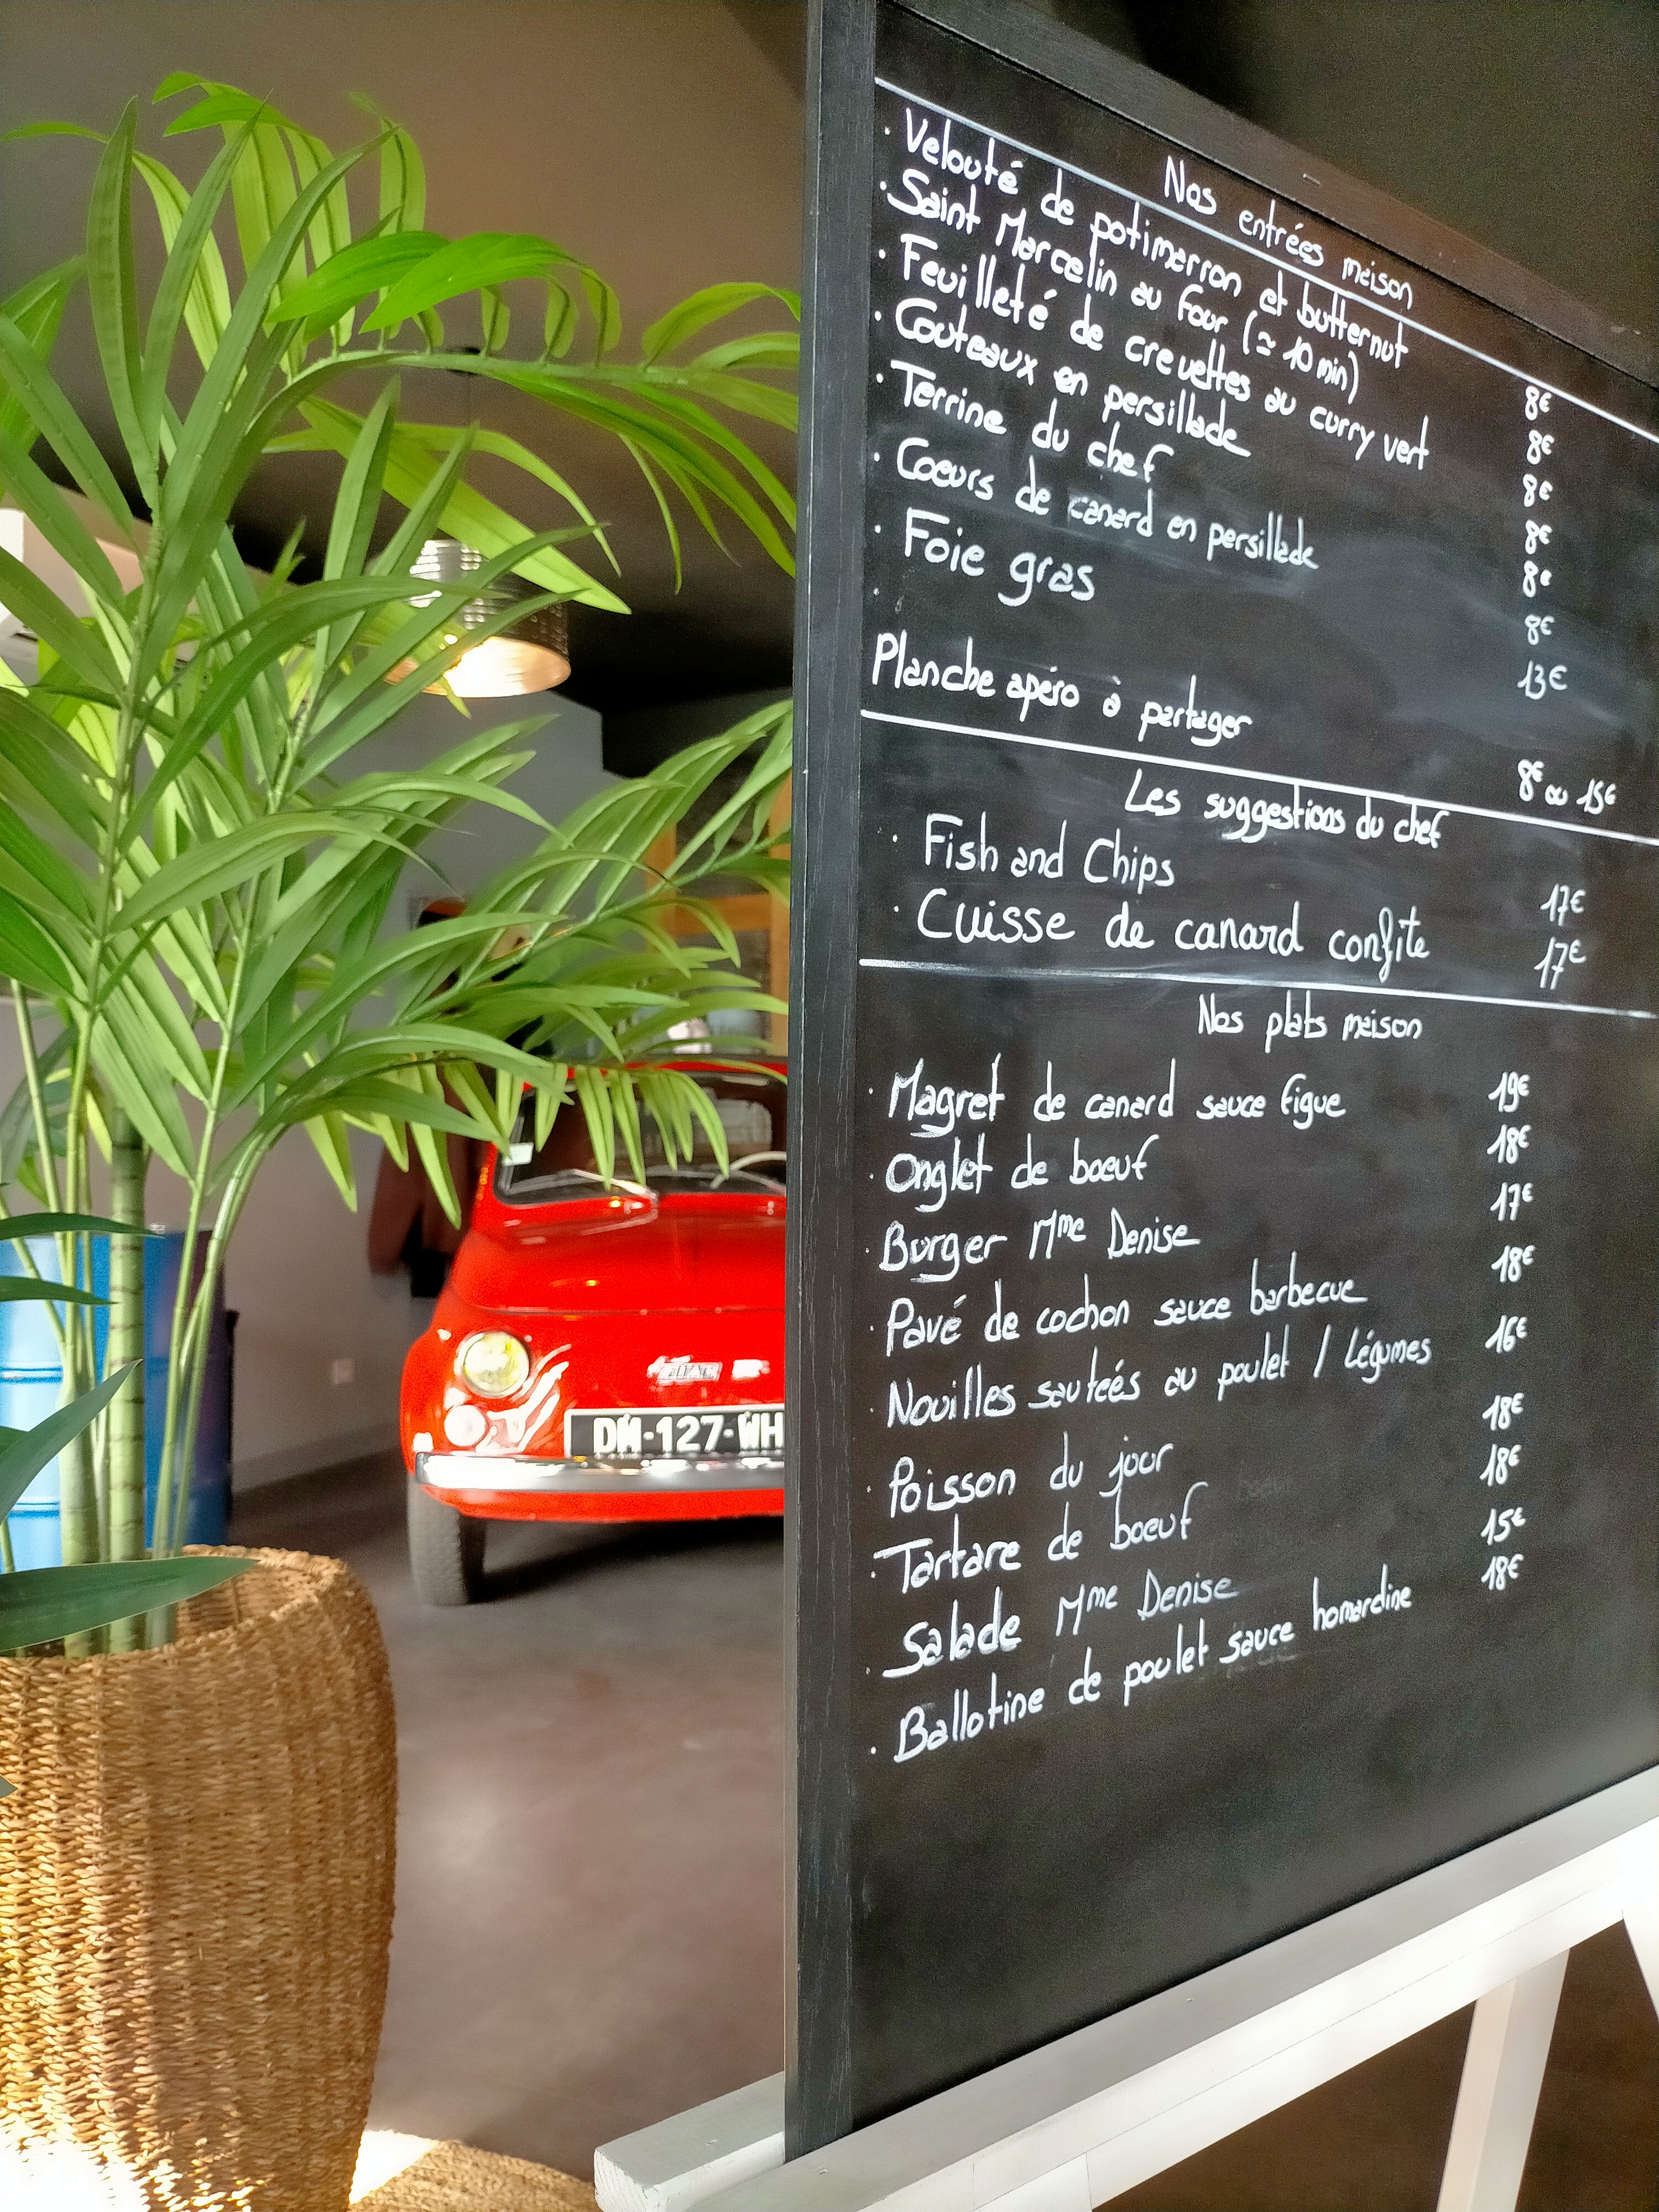 Nos entrées maison
· Velouté de potimarron et butternut 8€
· Saint Marcelin au four (≃ 10 min) 8€
· Feuilleté de crevettes au curry vert 8€
· Couteaux en persillade 8€
· Terrine du chef 8€
· Coeurs de canard en persillade 8€
· Foie gras 13€
·
Planche apéro à partager 8€ ou 15€
Les suggestions du chef
· Fish and Chips 17€
· Cuisse de canard confite 17€
Nos plats maison
· Magret de canard sauce figue 19€
· Onglet de boeuf 18€
· Burger Mme Denise 17€
· Pavé de cochon sauce barbecue 18€
· Nouilles sautées au poulet / Légumes 16€
· Poisson du jour 18€
· Tartare de boeuf 18€
· Salade Mme Denise 15€
· Ballotine de poulet sauce homardine 18€
FIAT
DM-127-WH